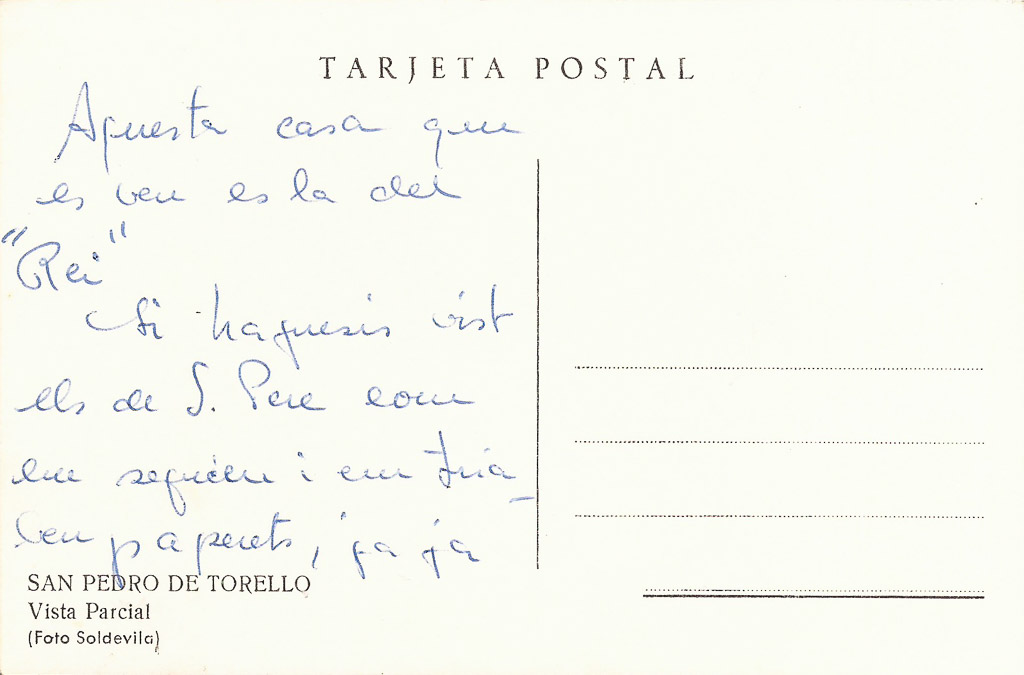 TARJETA POSTAL
Aquesta casa que
es veu es la del
"Rei"
Si haguesis vist
els de S. Pere com
em seguien i em
paperets, ja ja
SAN PEDRO DE TORELLO
Vista Parcial
(Foto Soldevila)